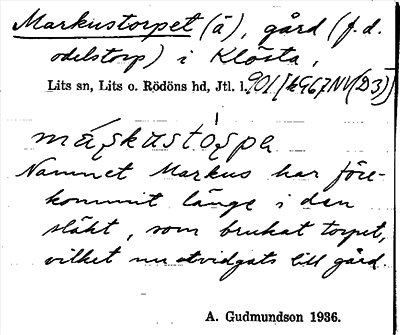 Markustorpet (ä), gård (f.d.
odelstorp) i Klösta,
Lits sn, Lits o. Rödöns hd, Jtl. l. 901 [K967NV(D3)]
Namnet Markus har före-
kommit länge i den
släkt, som brukat torpet,
vilket nu utvidgats till gård.
A. Gudmundson 1936.